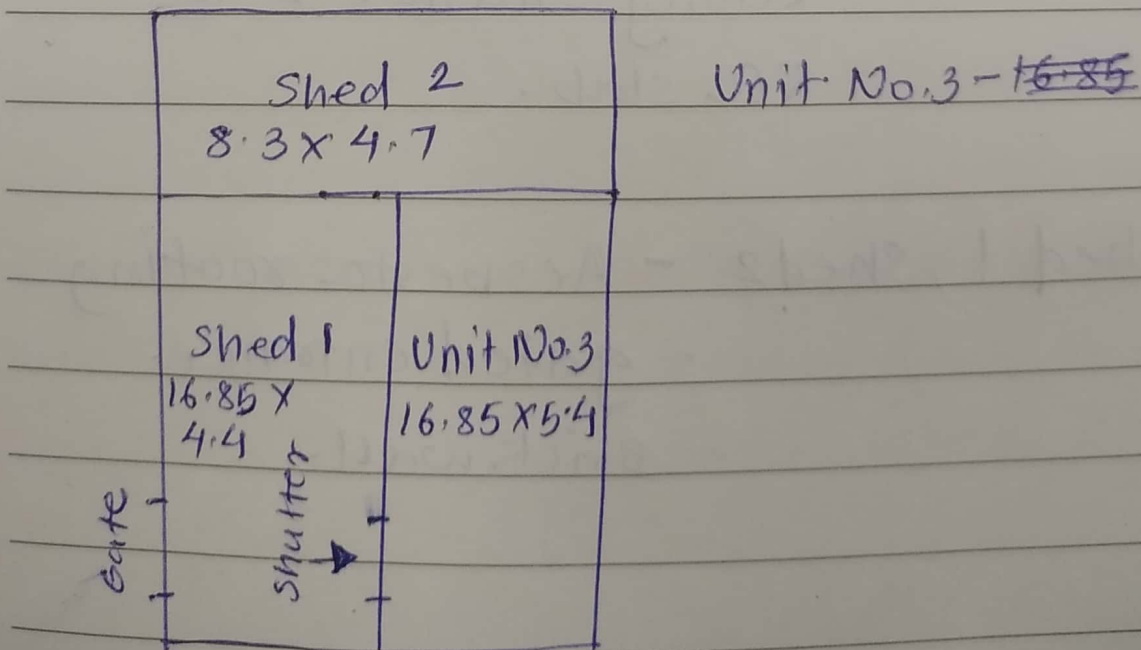 Shed 2
8.3 X 4.7
Unit No.3 - 16.85
Shed 1
16.85 X
4.4
Unit No.3
16.85 X 5.4
Gate
Shutter